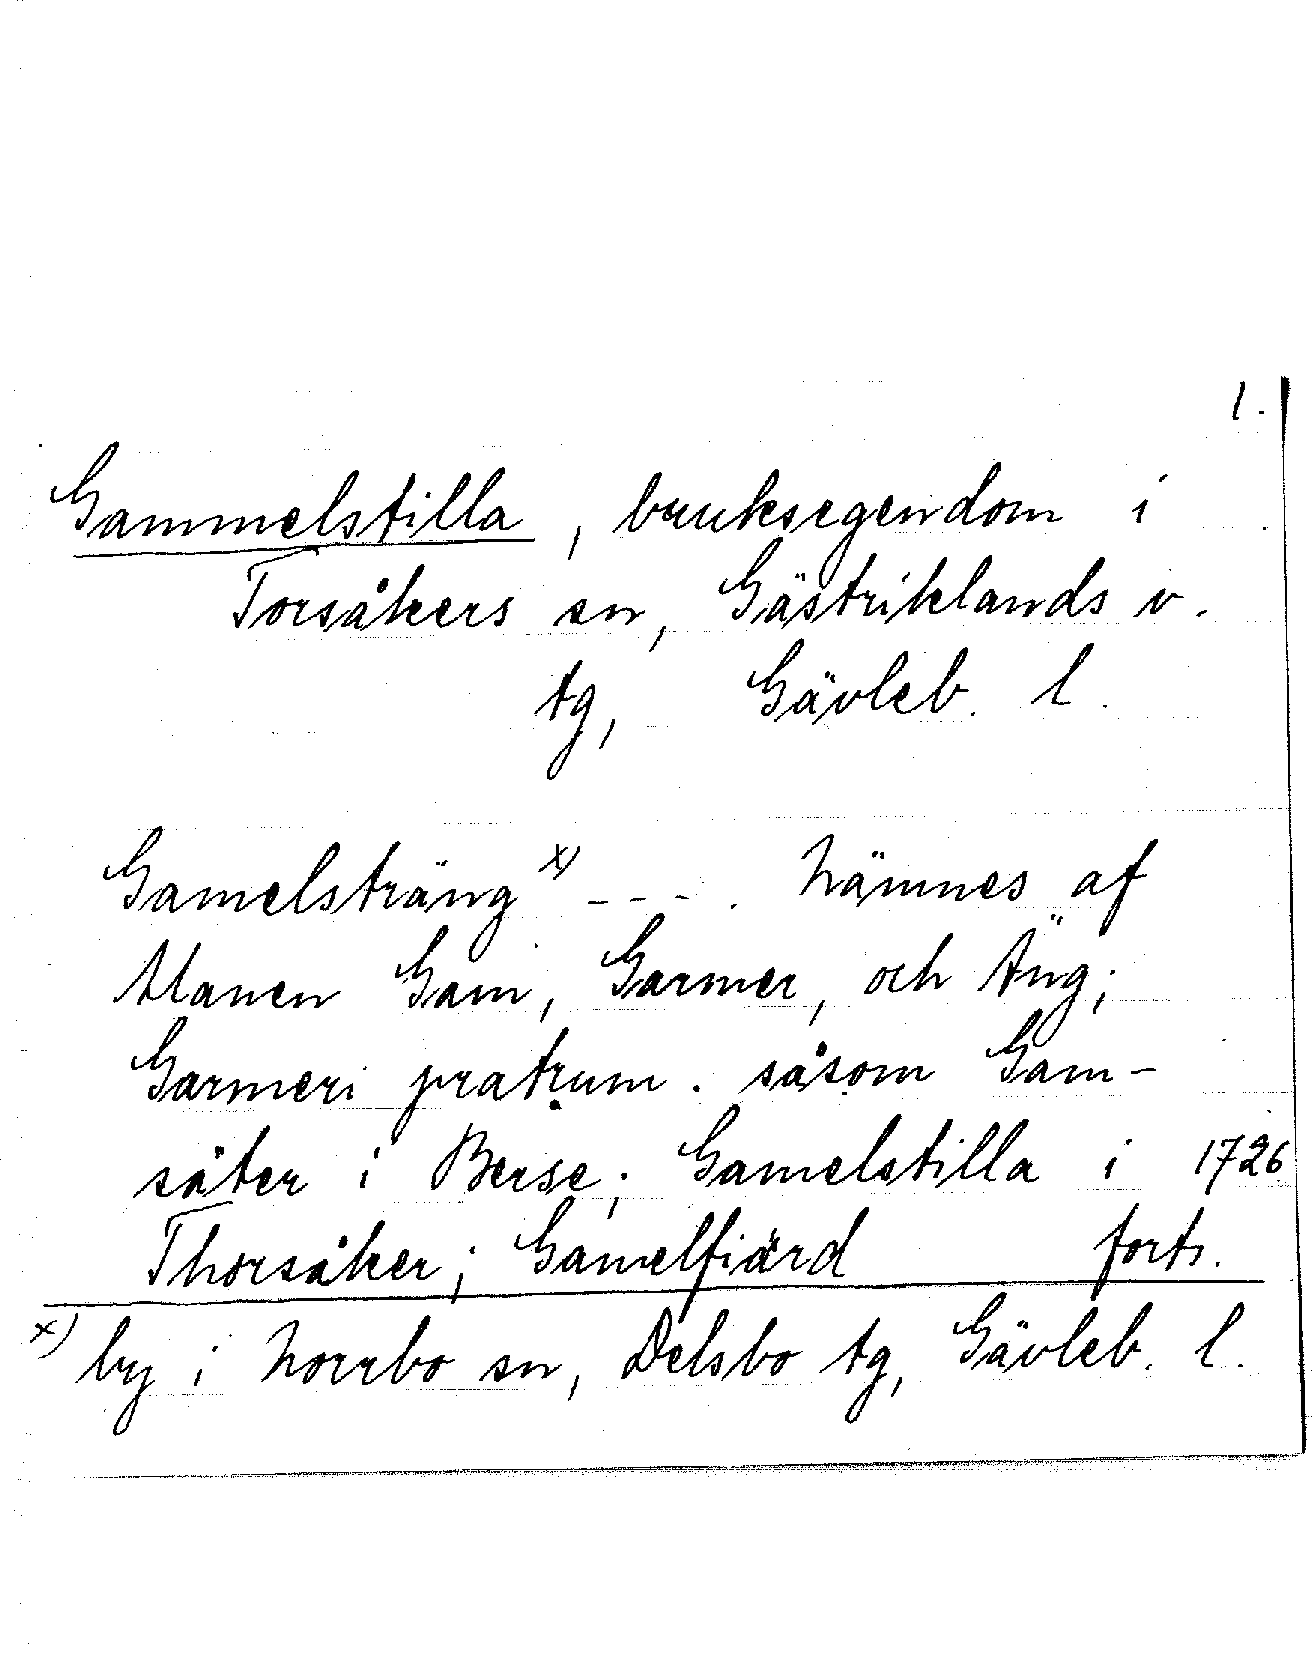 1.
Gammelstilla, bruksegendom i
Torsåkers sn, Gästriklands v.
tg, Gävleb. l.
Gamelsträng x) - - - . Nämnes af
Manen Gam, Garmer, och Äng;
Garmeri pratrum. såsom Gam-
säter i Berse; Gamelstilla i 1726
Thorsåker; Gamelfiärd forts.
x) by i Norrbo sn, Delsbo tg, Gävleb. l.